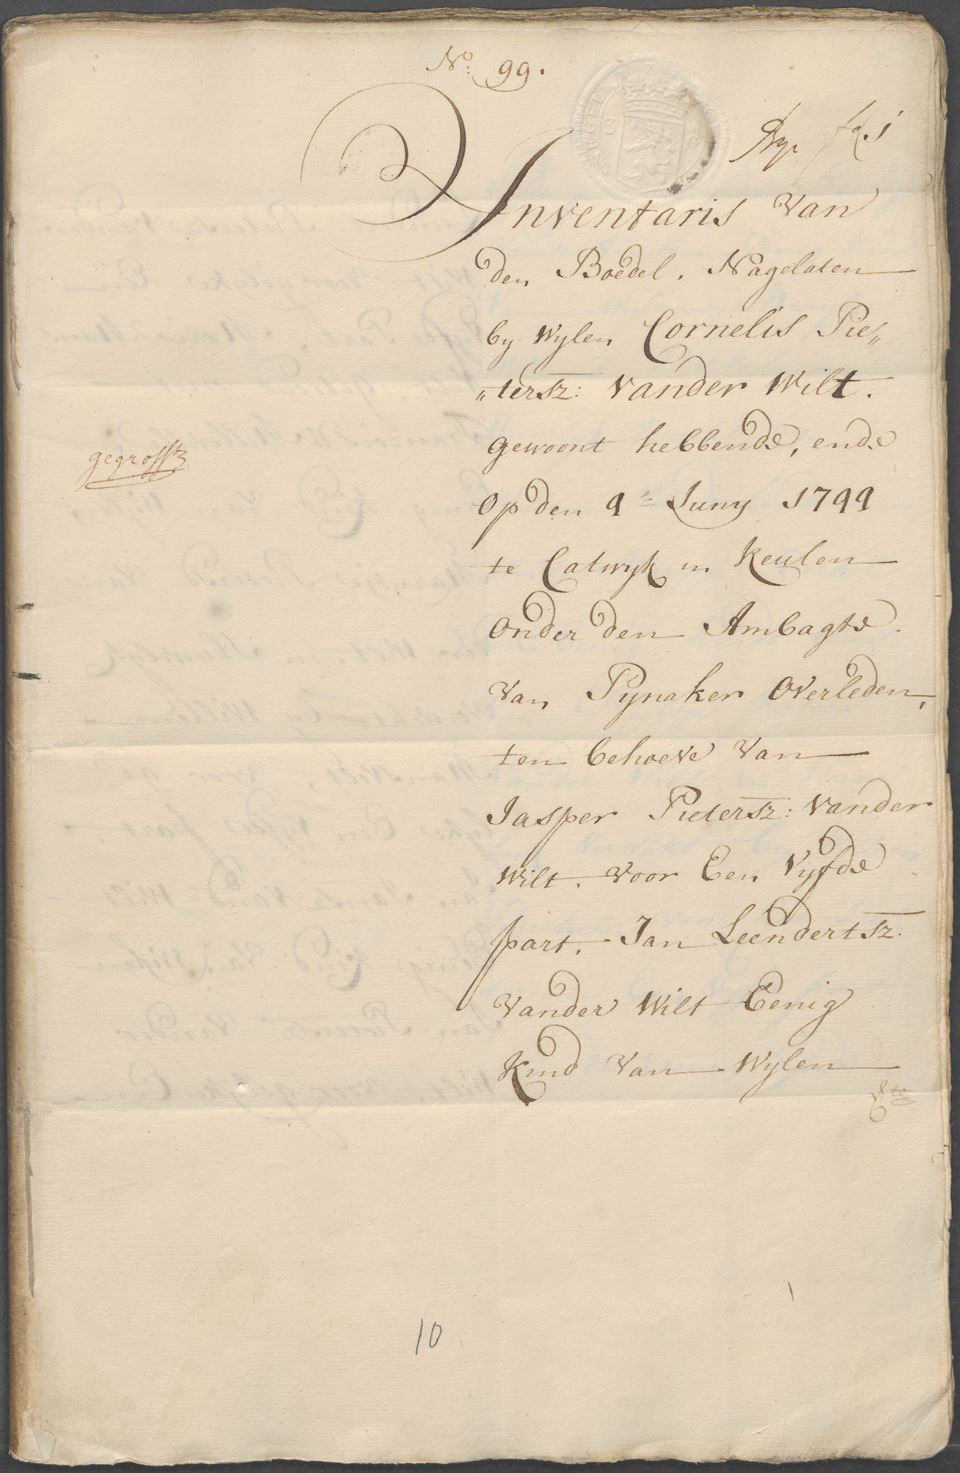 No. 99.
Inventaris Van
den Boedel. Nagelaten
by Wylen Cornelis Pie„
„tersz: Vander Wilt.
gewoont hebbende, ende
gegrosst
Op den 9e Juny 1799
te Catwyk in Keulen
Onder den Ambagte.
Van Pynaker Overleden,
ten behoeve Van
Jasper Pietersz: Vander
Wilt. Voor Een Vyfde
part. Jan Leendertsz.
Vander Wilt Eenig
Kind Van Wylen
10